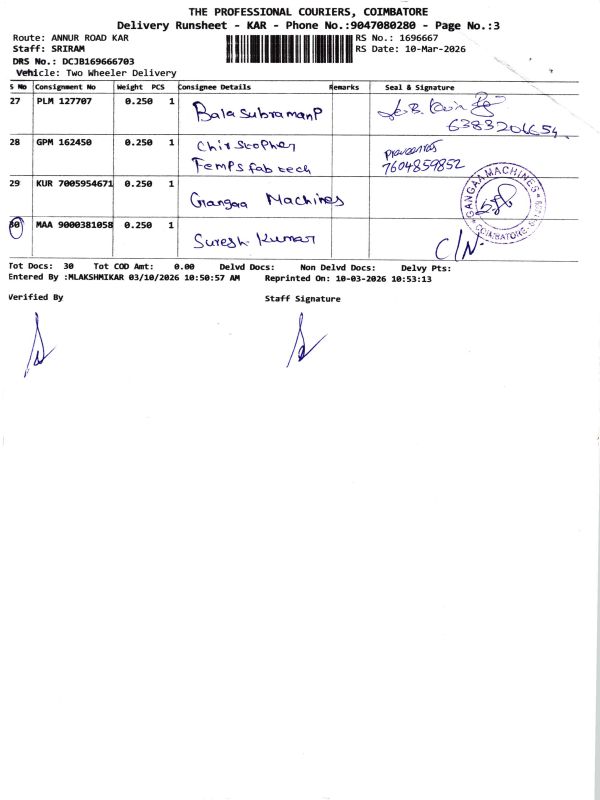 THE PROFESSIONAL COURIERS, COIMBATORE
Delivery Runsheet - KAR - Phone No.:9047080280 - Page No.:3
Route: ANNUR ROAD KAR RS No.: 1696667
Staff: SRIRAM RS Date: 10-Mar-2026
DRS No.: DCJB169666703
Vehicle: Two Wheeler Delivery
S No Consignment No Weight PCS Consignee Details Remarks Seal & Signature
27 PLM 127707 0.250 1 BalasubramanP
6383204654
28 GPM 162450 0.250 1 Christopher Praveenraj
Femps fab tech 7604859852
29 KUR 7005954671 0.250 1 Grangaa Machines
GANGAA MACHINES
COIMBATORE
30 MAA 9000381058 0.250 1 Suresh Kumar C/N
Tot Docs: 30 Tot COD Amt: 0.00 Delvd Docs: Non Delvd Docs: Delvy Pts:
Entered By :MLAKSHMIKAR 03/10/2026 10:50:57 AM Reprinted On: 10-03-2026 10:53:13
Verified By Staff Signature